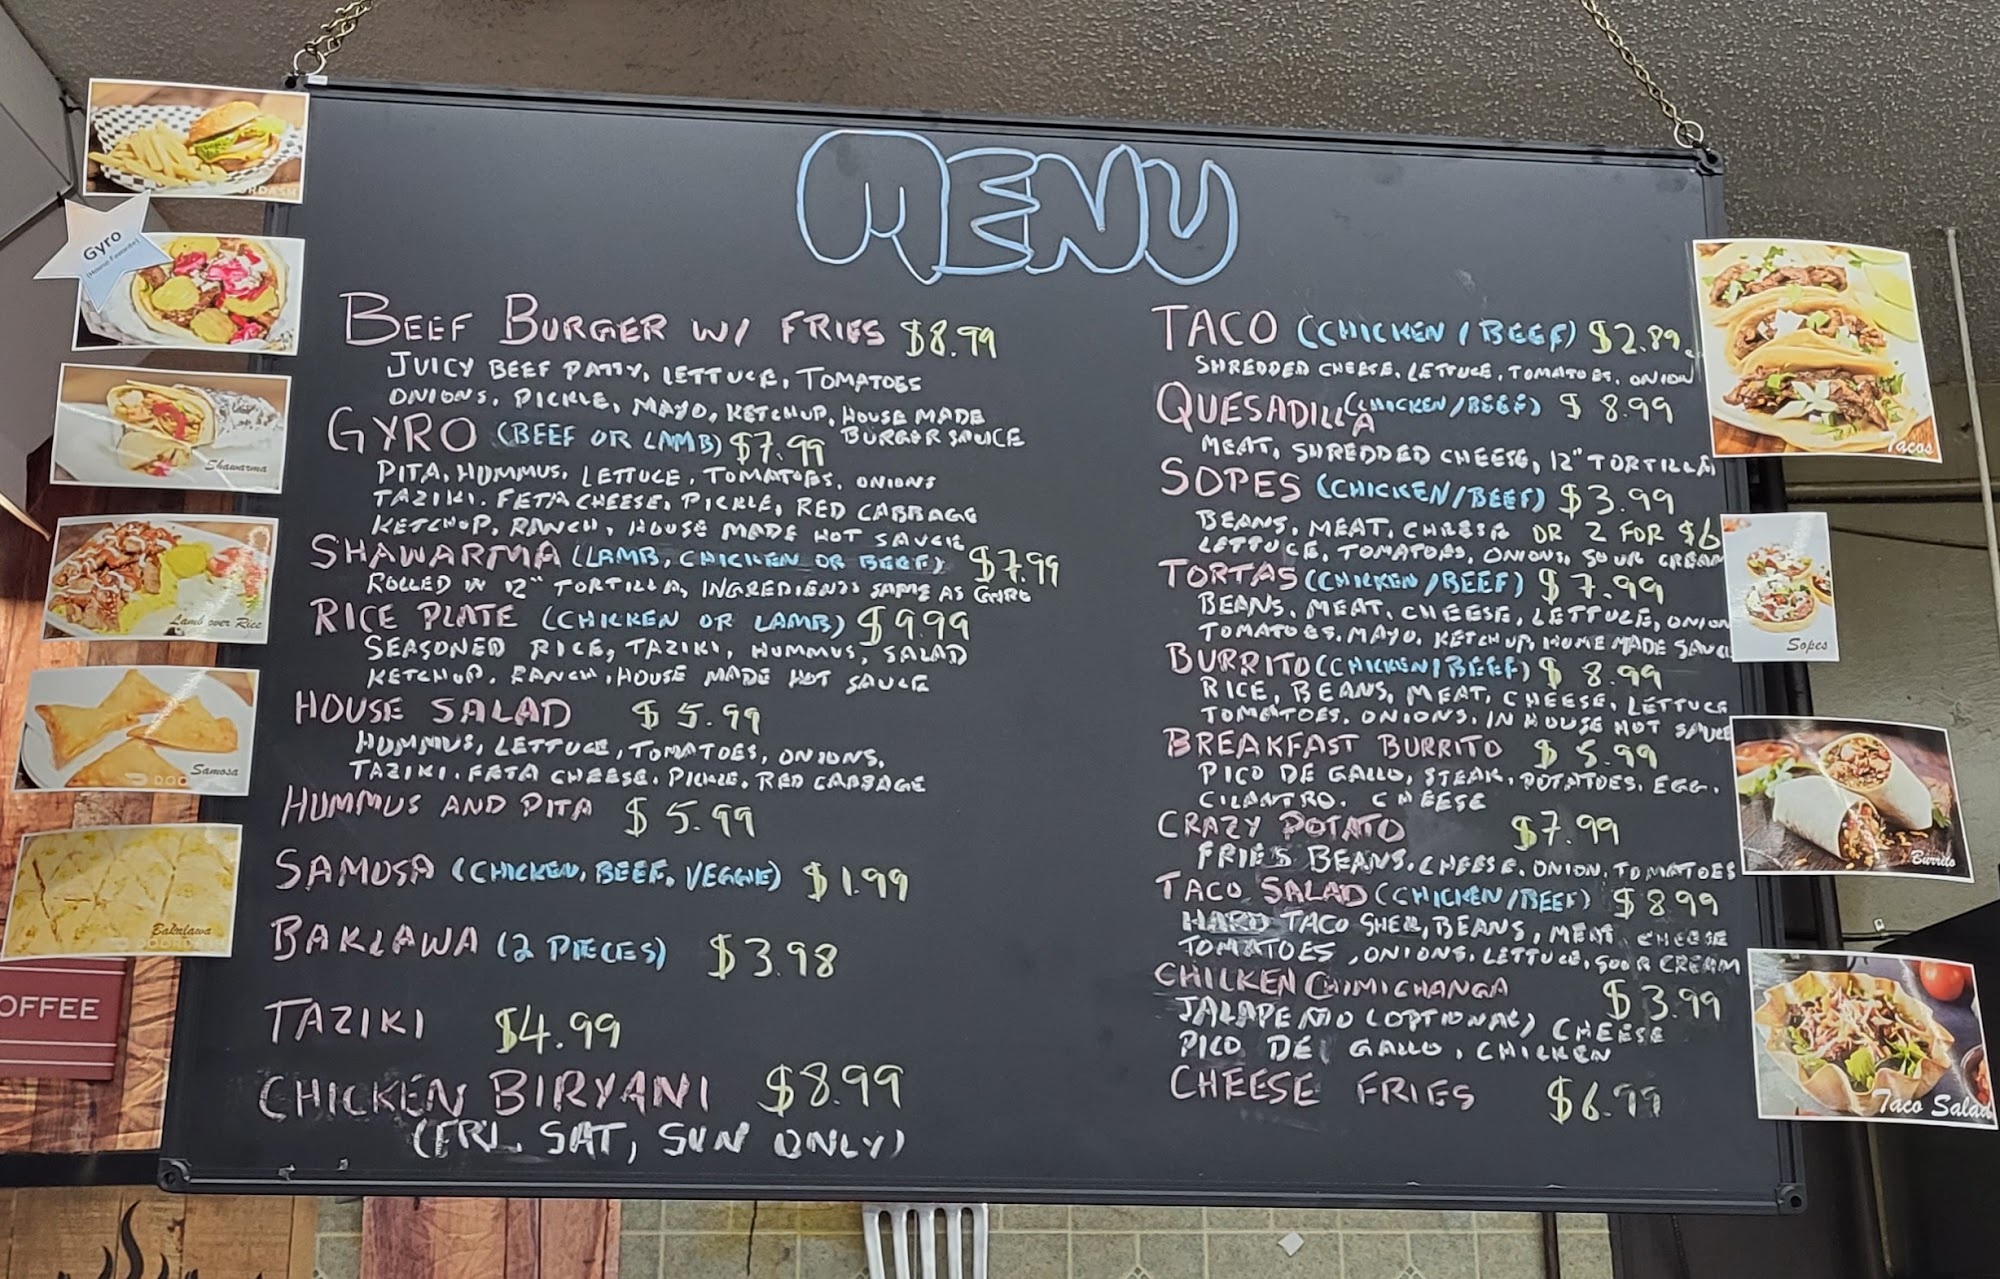 MENU
BEEF BURGER W/ FRIES $8.99
JUICY BEEF PATTY, LETTUCE, TOMATOES
ONIONS, PICKLE, MAYO, KETCHUP, HOUSE MADE
BURGER SAUCE
GYRO (BEEF OR LAMB) $7.99
PITA, HUMMUS, LETTUCE, TOMATOES, ONIONS
TAZIKI, FETA CHEESE, PICKLE, RED CABBAGE
KETCHUP, RANCH, HOUSE MADE HOT SAUCE
SHAWARMA (LAMB, CHICKEN OR BEEF) $7.99
ROLLED IN 12" TORTILLA, INGREDIENTS SAME AS GYRO
RICE PLATE (CHICKEN OR LAMB) $9.99
SEASONED RICE, TAZIKI, HUMMUS, SALAD
KETCHUP, RANCH, HOUSE MADE HOT SAUCE
HOUSE SALAD $5.99
HUMMUS, LETTUCE, TOMATOES, ONIONS,
TAZIKI, FETA CHEESE, PICKLE, RED CABBAGE
HUMMUS AND PITA $5.99
SAMOSA (CHICKEN, BEEF, VEGGIE) $1.99
BAKLAWA (2 PIECES) $3.98
TAZIKI $4.99
CHICKEN BIRYANI $8.99
(FRI, SAT, SUN ONLY)
TACO (CHICKEN / BEEF) $2.89
SHREDDED CHEESE, LETTUCE, TOMATOES, ONION
QUESADILLA (CHICKEN/BEEF) $8.99
MEAT, SHREDDED CHEESE, 12" TORTILLA
SOPES (CHICKEN/BEEF) $3.99
BEANS, MEAT, CHEESE OR 2 FOR $6
LETTUCE, TOMATOES, ONIONS, SOUR CREAM
TORTAS (CHICKEN/BEEF) $7.99
BEANS, MEAT, CHEESE, LETTUCE, ONION
TOMATOES, MAYO, KETCHUP, HOME MADE SAUCE
BURRITO (CHICKEN/BEEF) $8.99
RICE, BEANS, MEAT, CHEESE, LETTUCE
TOMATOES, ONIONS, IN HOUSE HOT SAUCE
BREAKFAST BURRITO $5.99
PICO DE GALLO, STEAK, POTATOES, EGG,
CILANTRO, CHEESE
CRAZY POTATO $7.99
FRIES BEANS, CHEESE, ONION, TOMATOES
TACO SALAD (CHICKEN/BEEF) $8.99
HARD TACO SHELL, BEANS, MEAT CHEESE
TOMATOES, ONIONS, LETTUCE, SOUR CREAM
CHICKEN CHIMICHANGA $3.99
JALAPENO (OPTIONAL) CHEESE
PICO DE GALLO, CHICKEN
CHEESE FRIES $6.99
Gyro
(House Favorite)
Shawarma
Lamb over Rice
Samosa
Baklawa
DOORDASH
OFFEE
Tacos
Sopes
Burrito
Taco Salad